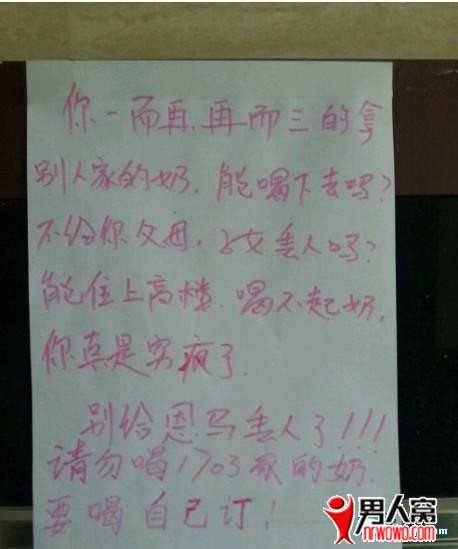 你一而再.再而三的拿
别人家的奶.能喝下去吗?
不给你父母,子女丢人吗?
能住上高楼.喝不起奶,
你真是穷疯了.
别给恩马丢人了!!!
请勿喝1703家的奶.
要喝自己订!
男人窝
nrwowo.com